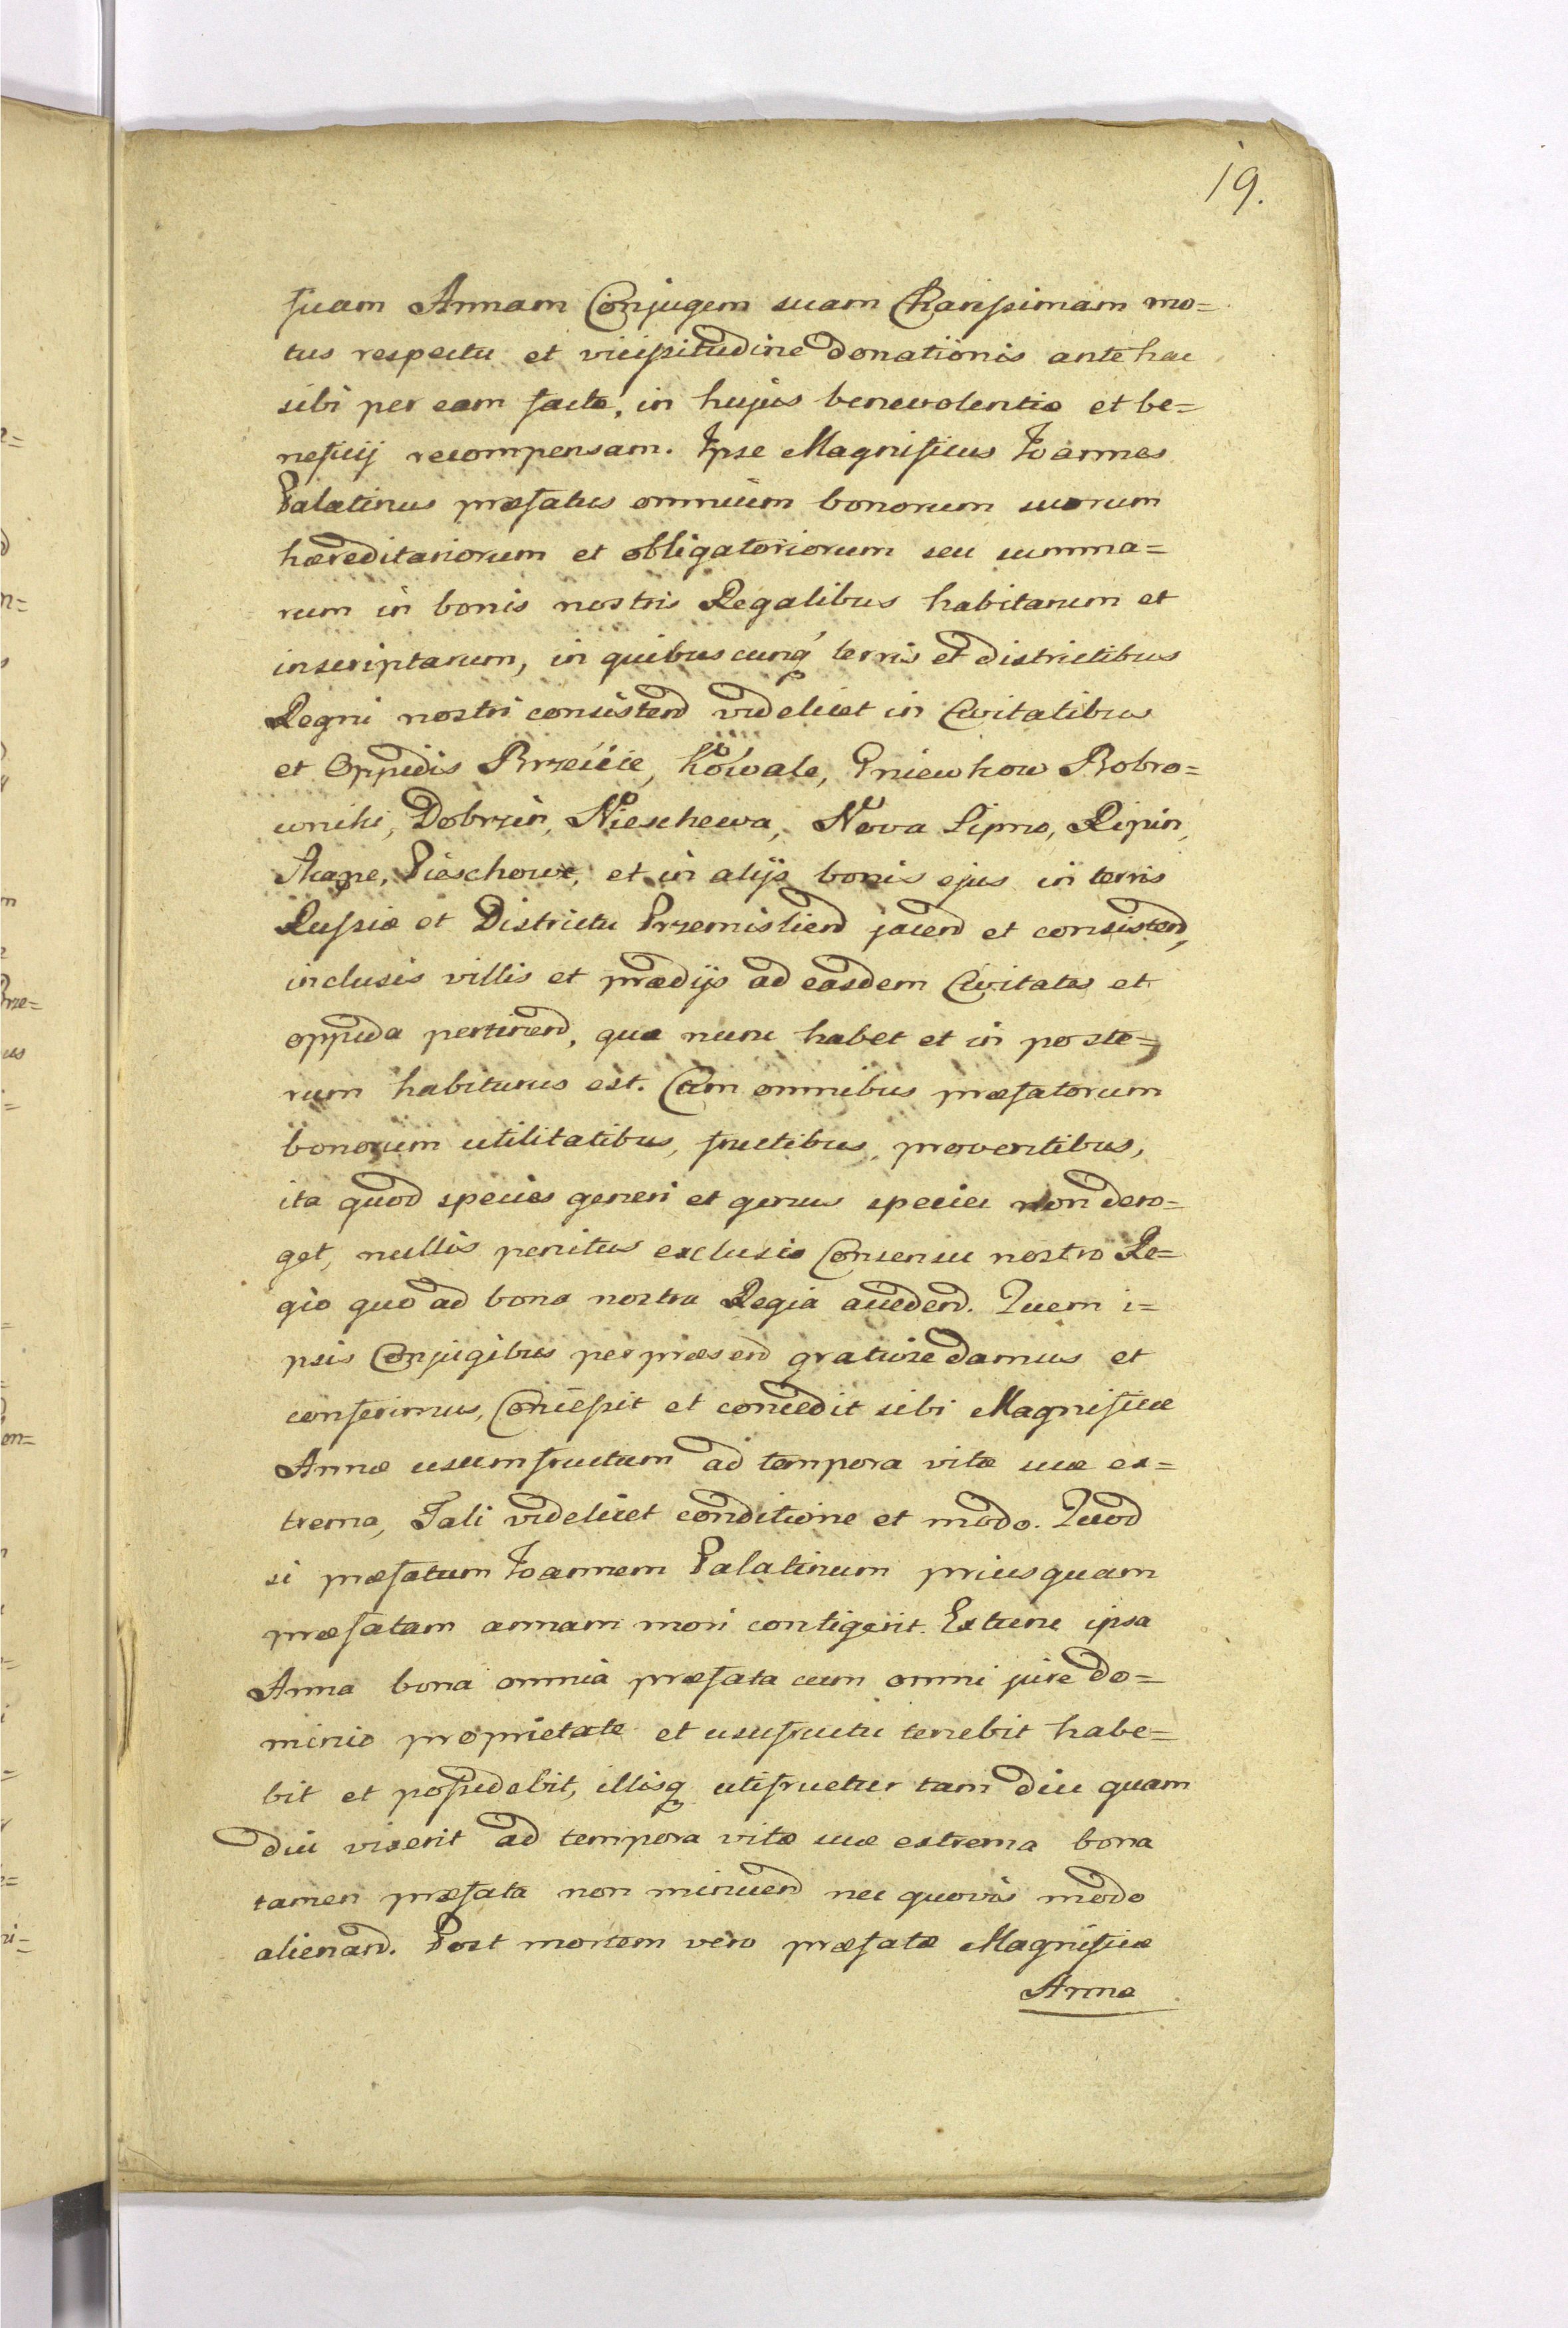 19.
suam Annam Conjugem suam Charissimam mo=
tus respectu et vicissitudine donationis ante hac
sibi per eam factæ, in hujus benevolentiæ et be=
neficij recompensam. Ipse Magnificus Joannes
Palatinus præfatus omnium bonorum suorum
hæreditariorum et obligatoriorum seu summa=
rum in bonis nostris Regalibus habitarum et
inscriptarum, in quibuscunq́ terris et districtibus
Regni nostri consistend videlicet in Civitatibus
et Oppidis Brzescie, Kowale, Gniewkow Bobro=
wniki, Dobrzin, Nieschewa, Nova Lipno, Ripin,
Pieschowe, et in alijs bonis ejus in terris
Russiæ et Districtu Przemisliend jacend et consistend,
inclusis villis et prædijs ad easdem Civitates et
oppida pertinend, quæ nunc habet et in poste=
rum habiturus est. Cum omnibus præfatorum
bonorum utilitatibus, fructibus, proventibus,
ita quod species generi et genus speciei non dero=
get, nullis penitus exclusis Consensu nostro Re=
gio quo ad bona nostra Regia acceden̄d. Quem i=
psis Conjugibus per præsend gratiose damus et
conferimus, Concessit et concedit sibi Magnificæ
Annæ usumfructum ad tempora vitæ suæ ex=
trema, Tali videlicet conditione et modo. Quod
si præfatum Joannem Palatinum priusquam
præfatam annam mori contigerit. Extunc ipsa
Anna bona omnia præfata cum omni jure do=
minio proprietate et usufructu tenebit habe=
bit et possidebit, illisq utifruetur tam diu quam
diu vixerit ad tempora vitæ suæ extrema bona
tamen præfata non minuend nec quovis modo
alienand. Post mortem vero præfatæ Magnificæ
Annæ